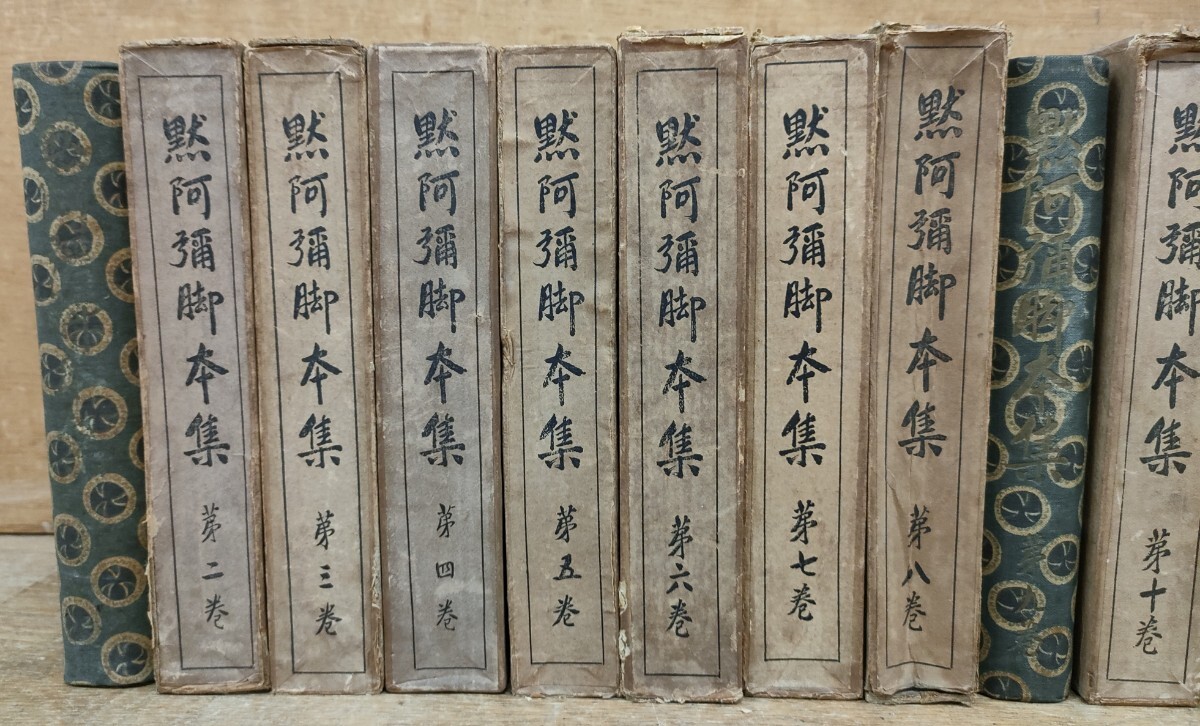 默阿彌脚本集 第二巻
默阿彌脚本集 第三巻
默阿彌脚本集 第四巻
默阿彌脚本集 第五巻
默阿彌脚本集 第六巻
默阿彌脚本集 第七巻
默阿彌脚本集 第八巻
默阿彌脚本集
默阿彌脚本集 第十巻